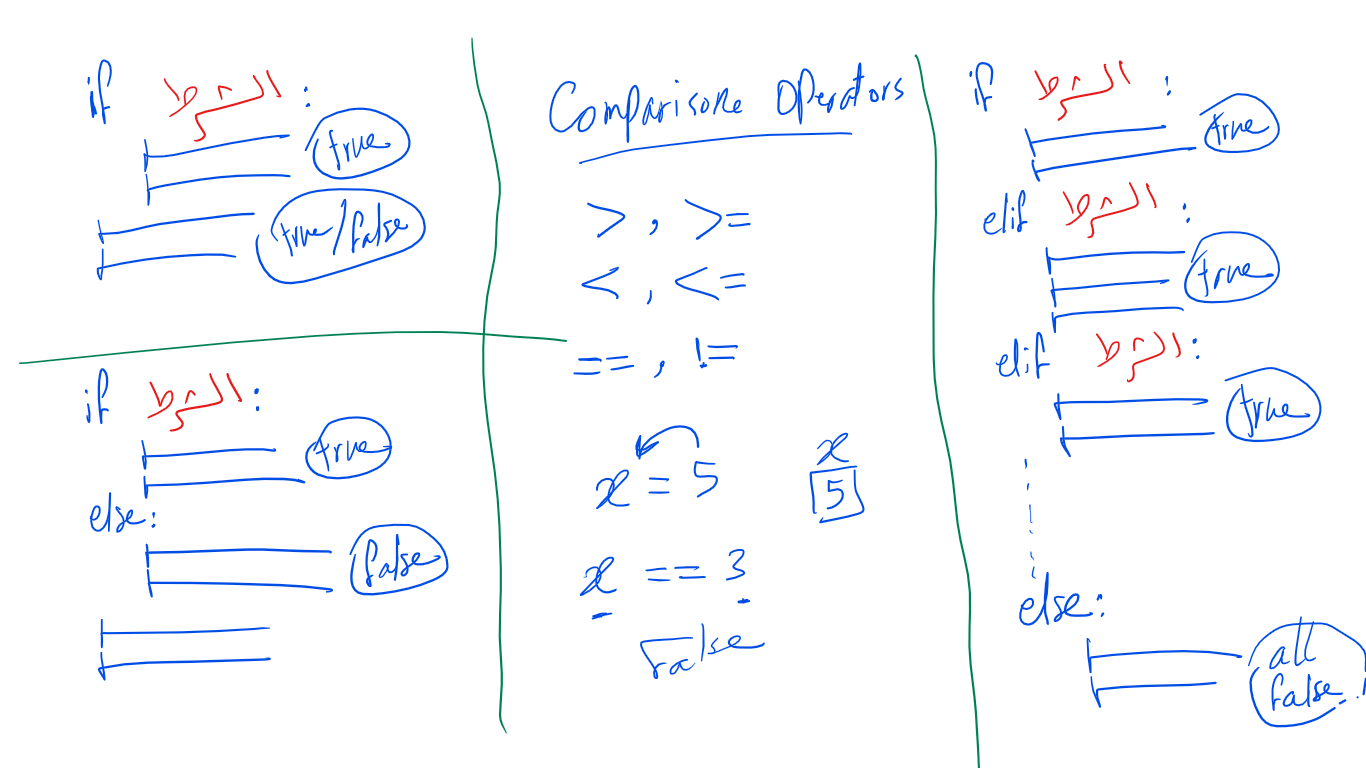 if الشرط :
true
true/false
if الشرط :
true
else:
false
Comparisone Operators
> , >=
< , <=
== , !=
x = 5
x
5
x == 3
False
if الشرط :
true
elif الشرط :
true
elif الشرط :
true
else:
all
false